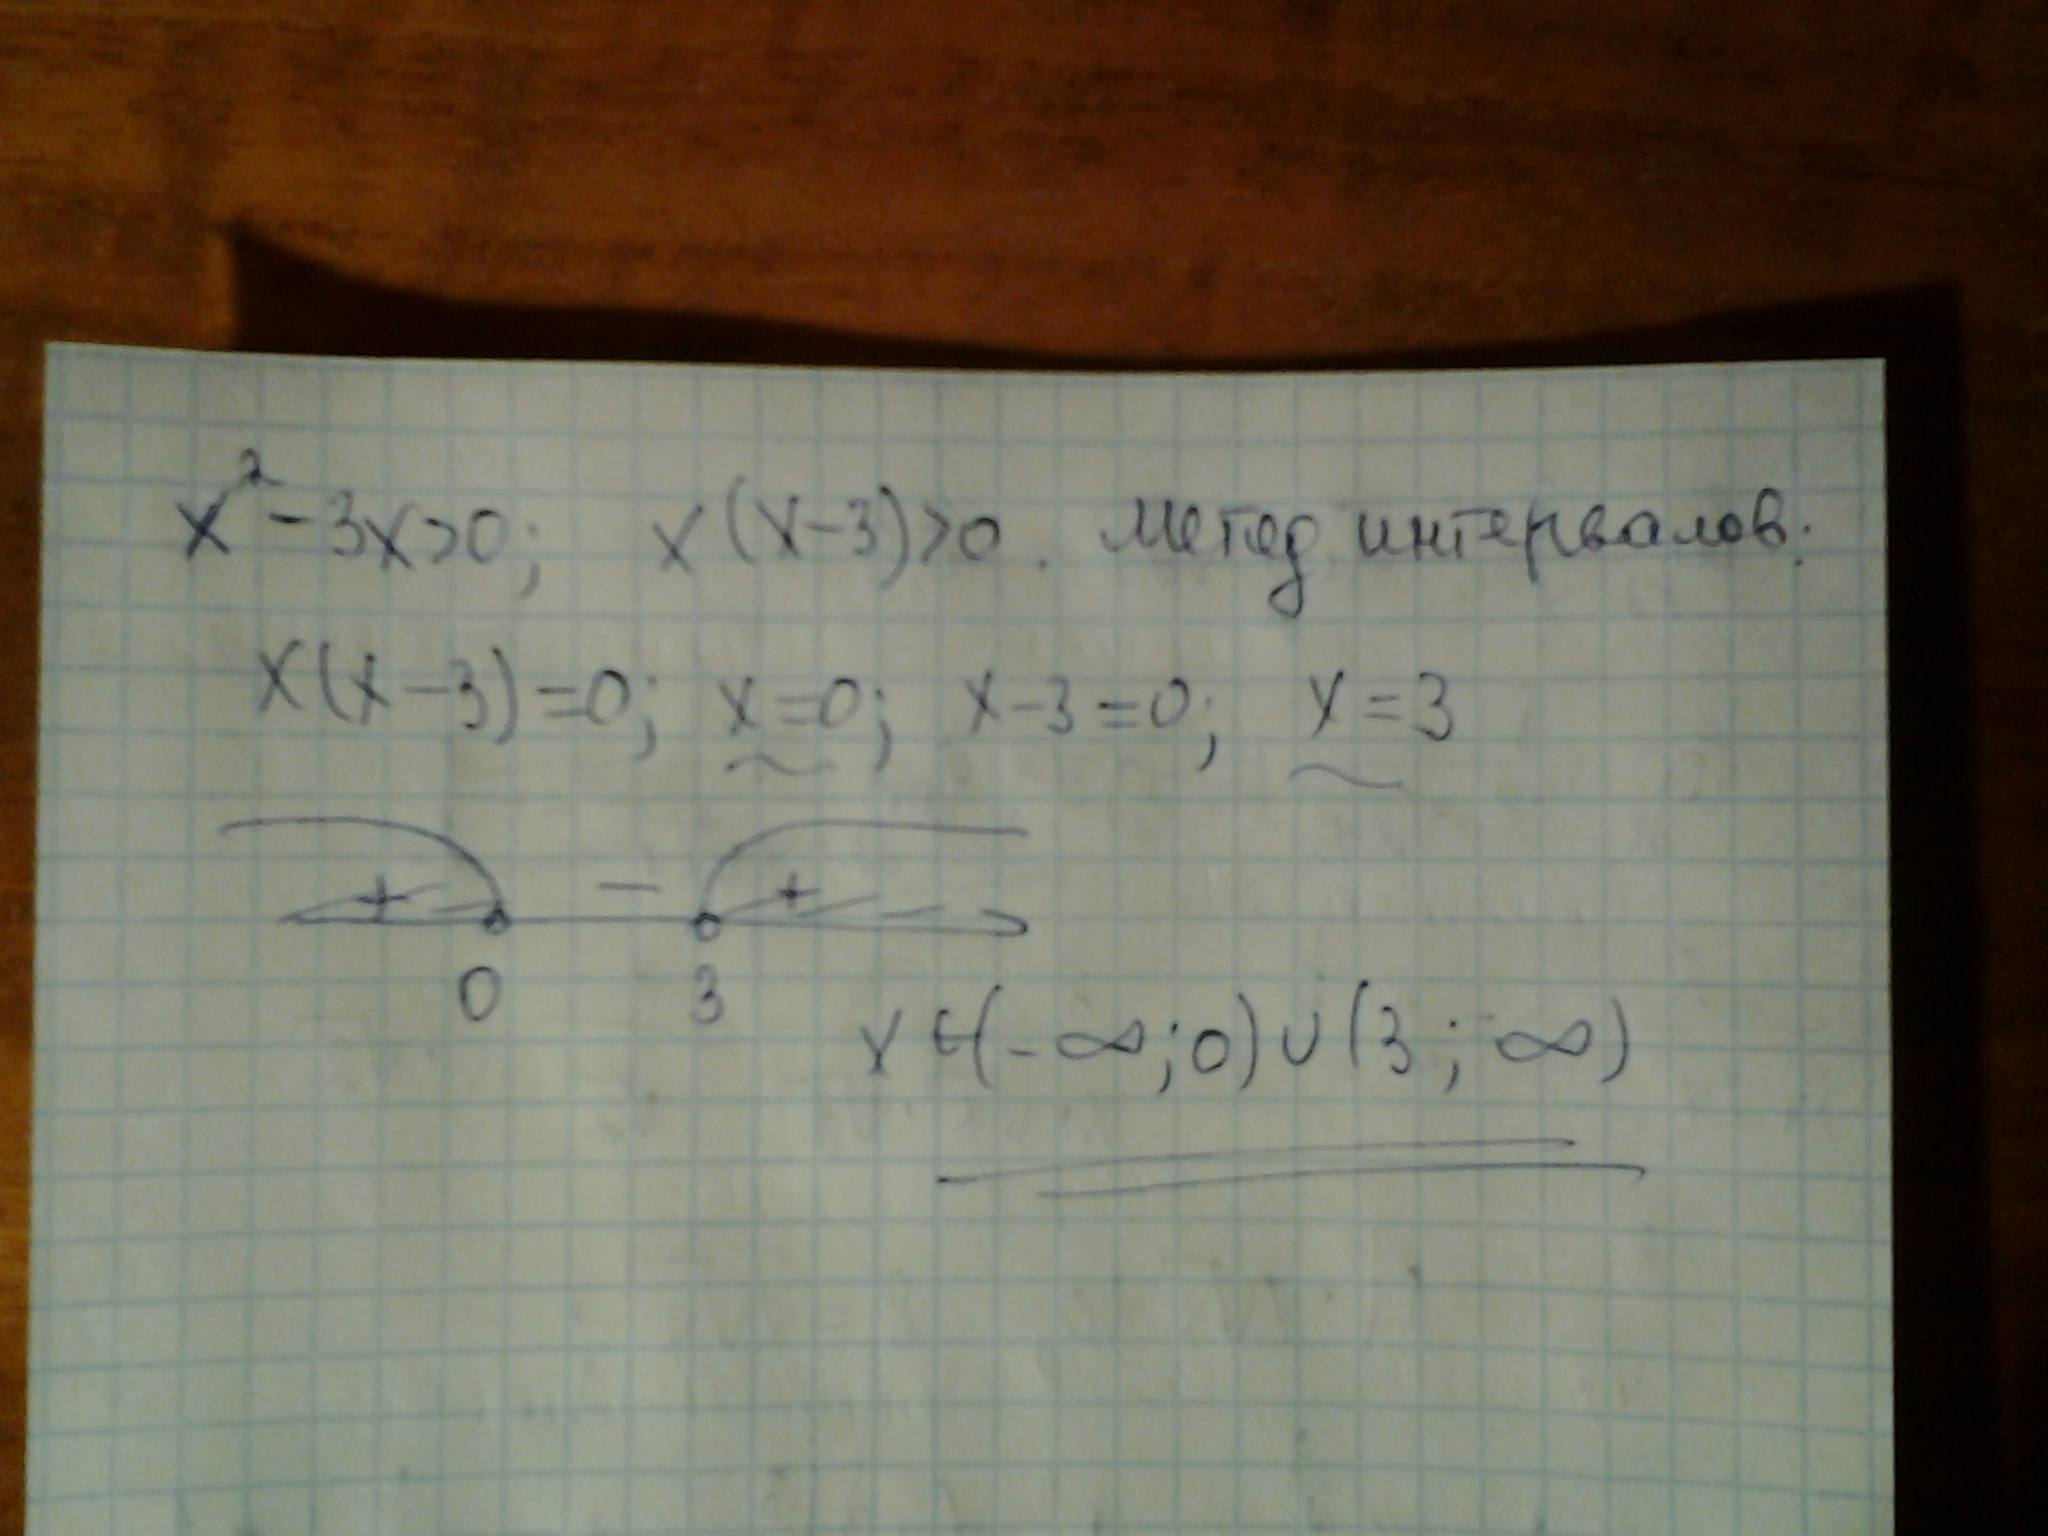 x²-3x>0; x(x-3)>0. Метод интервалов.
x(x-3)=0; x=0; x-3=0; x=3
+ - +
0 3
x∈(-∞;0)∪(3;∞)